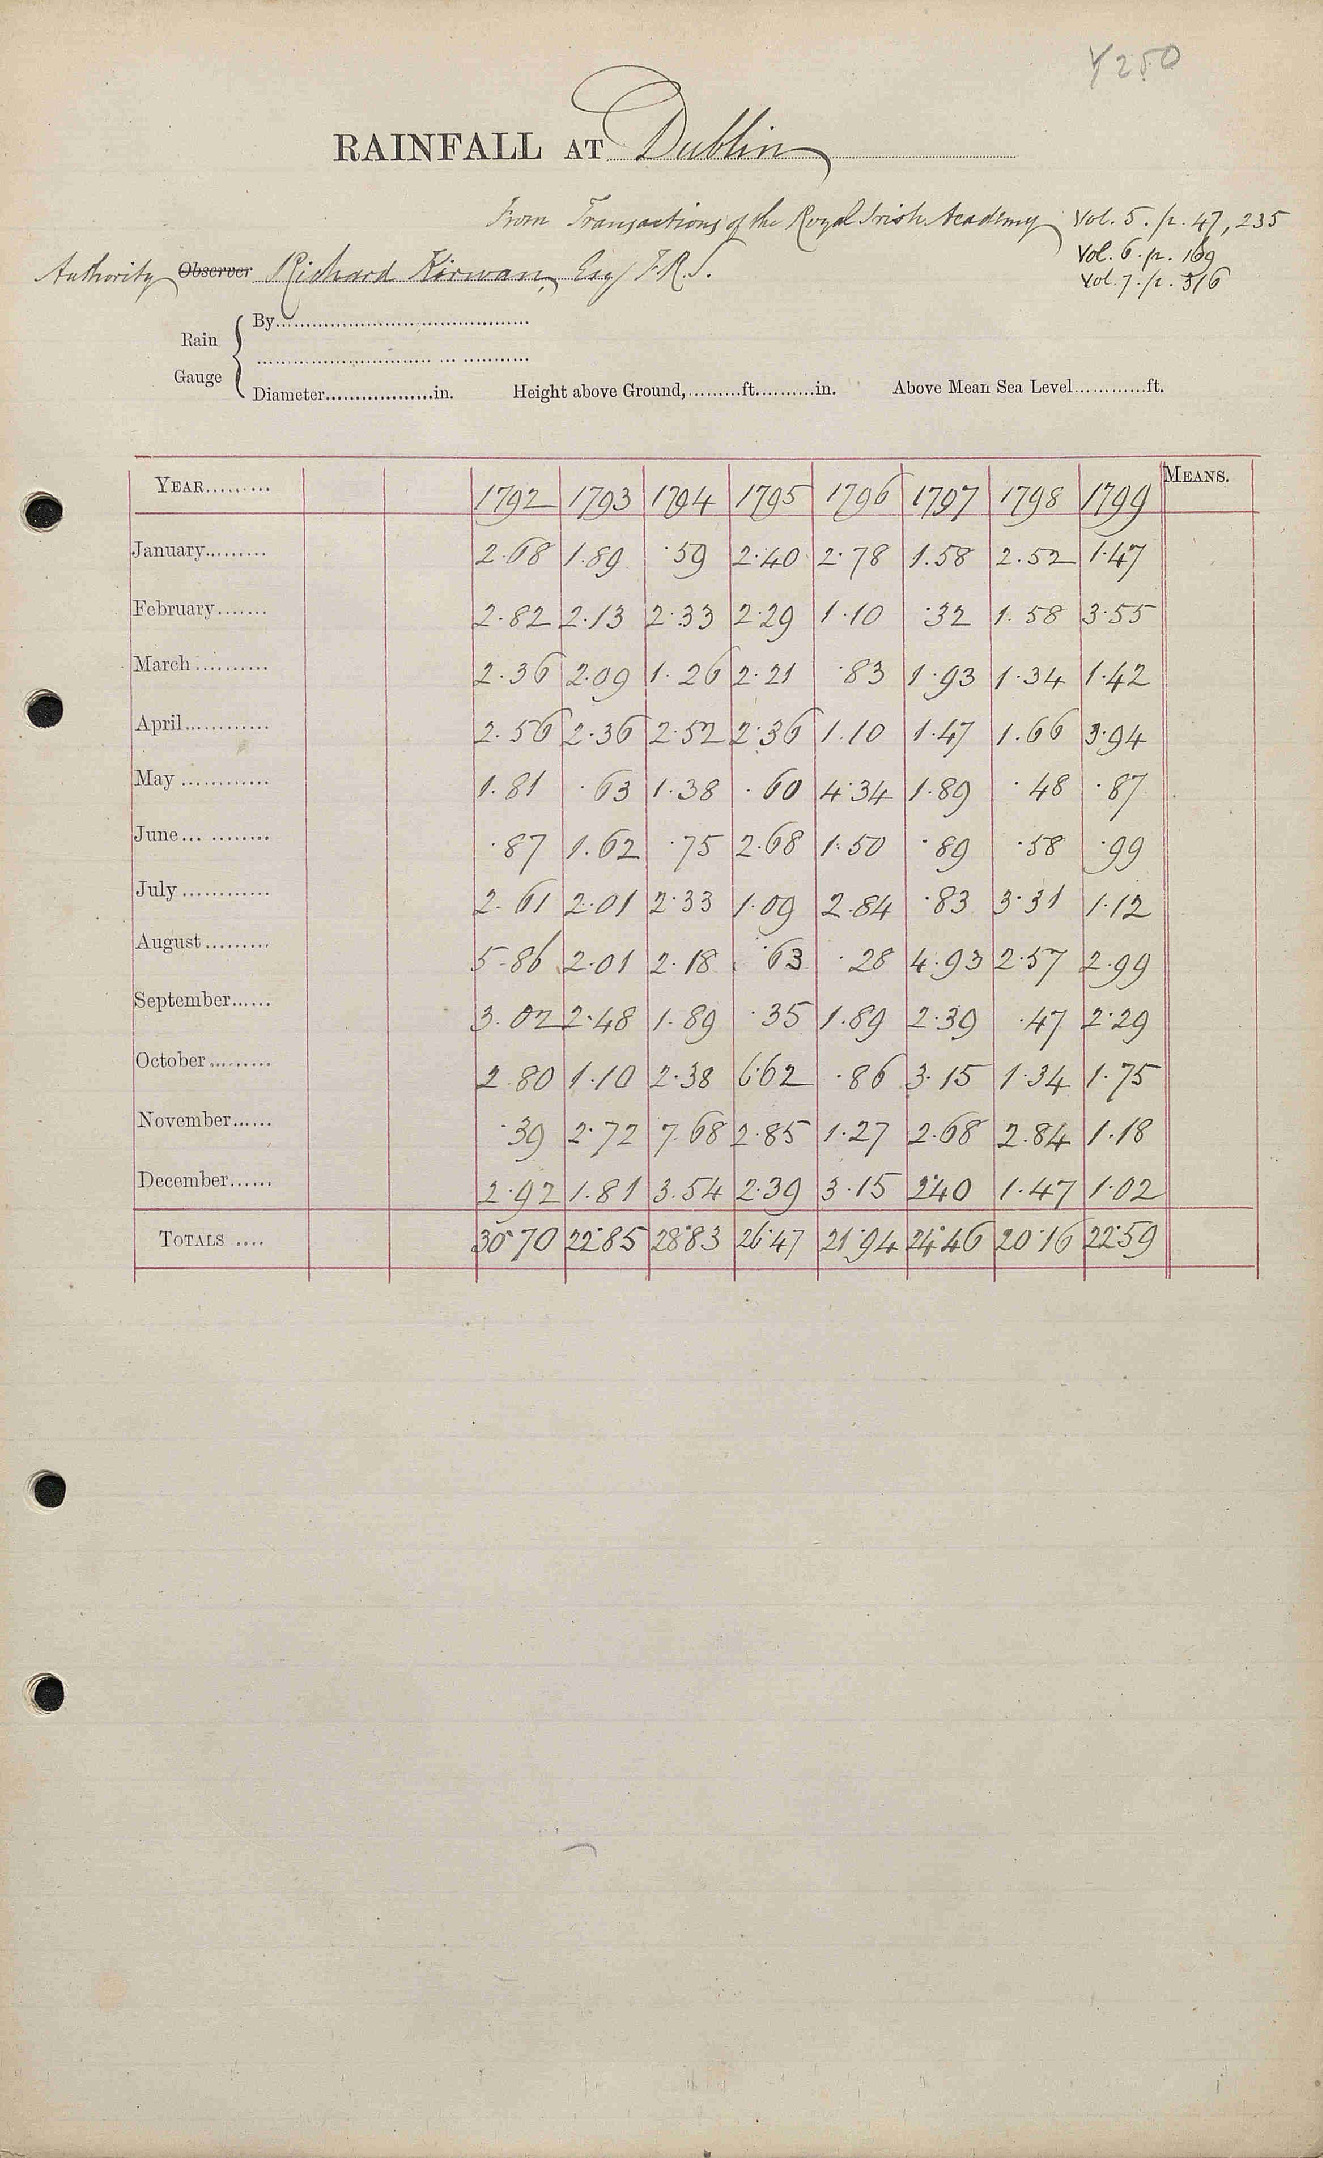 Y250
RAINFALL AT Dublin
From Transactions of the Royal Irish Academy Vol. 5. p. 47, 235
Vol. 6. p. 169
Authority Observer Richard Kirwan, Esq F.R.S.
Vol. 7. p. 316
Rain Gauge
By
Diameter in. Height above Ground, ft. in. Above Mean Sea Level ft.
YEAR 1792 1793 1794 1795 1796 1797 1798 1799 MEANS.
January 2.68 1.89 .59 2.40 2.78 1.58 2.52 1.47
February 2.82 2.13 2.33 2.29 1.10 .32 1.58 3.55
March 2.36 2.09 1.26 2.21 .83 1.93 1.34 1.42
April 2.56 2.36 2.52 2.36 1.10 1.47 1.66 3.94
May 1.81 .63 1.38 .60 4.34 1.89 .48 .87
June .87 1.62 .75 2.68 1.50 .89 .58 .99
July 2.61 2.01 2.33 1.09 2.84 .83 3.31 1.12
August 5.86 2.01 2.18 .63 .28 4.93 2.57 2.99
September 3.02 2.48 1.89 .35 1.89 2.39 .47 2.29
October 2.80 1.10 2.38 6.62 .86 3.15 1.34 1.75
November .39 2.72 7.68 2.85 1.27 2.68 2.84 1.18
December 2.92 1.81 3.54 2.39 3.15 2.40 1.47 1.02
TOTALS 30.70 22.85 28.83 26.47 21.94 24.46 20.16 22.59